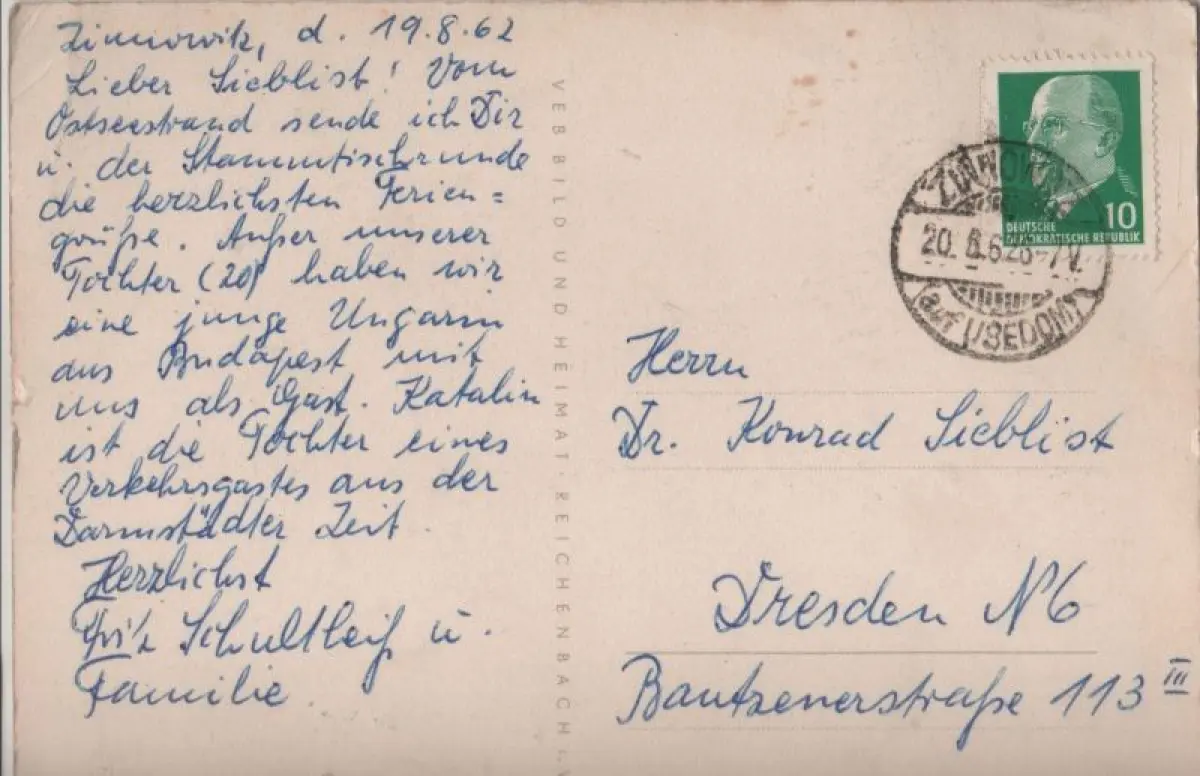 Zinnowitz, d. 19.8.62
Lieber Sieblist! Vom
Ostseestrand sende ich Dir
u. der Stammtischrunde
die herzlichsten Ferien=
grüße. Außer unserer
Tochter (20) haben wir
eine junge Ungarin
aus Budapest mit
uns als Gast. Katalin
ist die Tochter eines
Verkehrsgastes aus der
Darmstädter Zeit.
Herzlichst
Fritz Schultheiß u.
Familie
VEB BILD UND HEIMAT · REICHENBACH i. V
10
DEUTSCHE
DEMOKRATISCHE REPUBLIK
ZINNOWITZ
20. 8.62
auf USEDOM
Herrn
Dr. Konrad Sieblist
Dresden N6
Bautzenerstraße 113 III